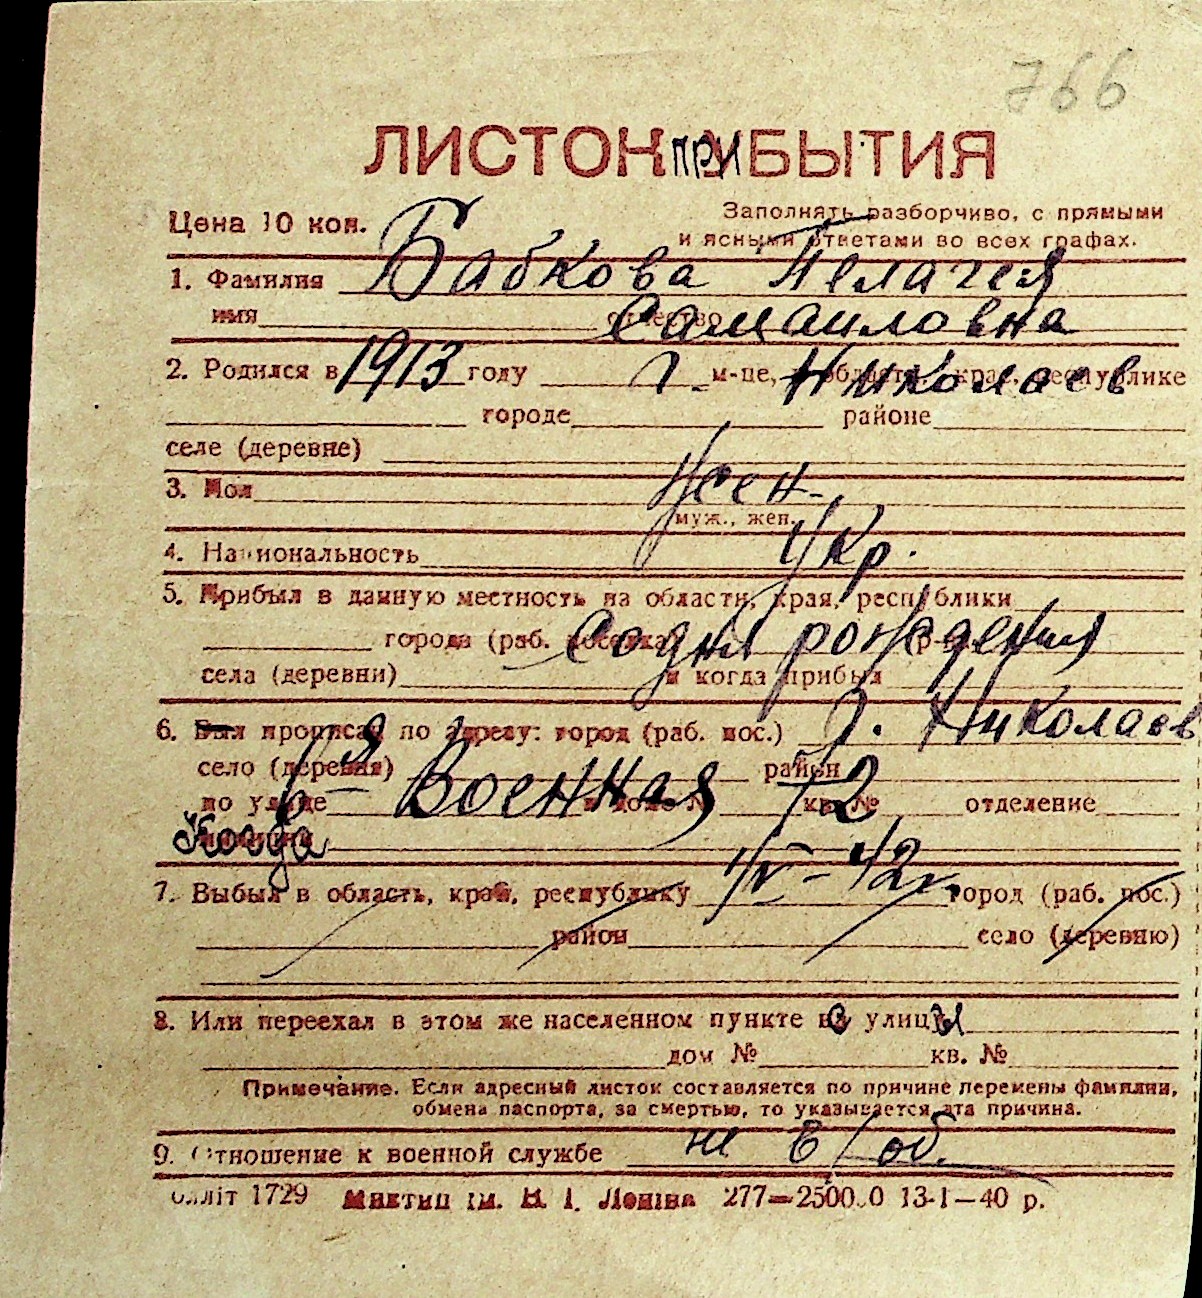 766
ЛИСТОК ПРИБЫТИЯ
Цена 10 коп.
Заполнять разборчиво, с прямыми
и ясными ответами во всех графах.
1. Фамилия Бабкова Пелагея
имя отчество Самаиловна
2. Родился в 1913 году г. м-це, Николаев области, края, республике
городе районе
селе (деревне)
3. Пол Жен-
муж., жен.
4. Национальность Укр.
5. Прибыл в данную местность из области, края, республики
города (раб. поселка) Со дня рождения
села (деревни) и когда прибыл
6. Был прописан по адресу: город (раб. пос.) г. Николаев
село (деревня) район
по улице 6-я Военная в доме № 72 кв. № отделение
Когда милиции
7. Выбыл в область, край, республику IV-42г. город (раб. пос.)
район село (деревню)
8. Или переехал в этом же населенном пункте с улицы
дом № кв. №
Примечание. Если адресный листок составляется по причине перемены фамилии,
обмена паспорта, за смертью, то указывается эта причина.
9. Отношение к военной службе не в/об.
Облліт 1729 Миктип ім. В. І. Леніна 277—25000 13-I—40 р.